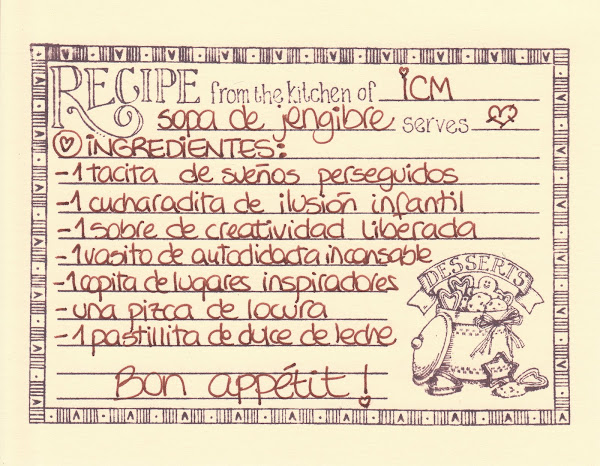 RECIPE from the kitchen of ICM
sopa de jengibre serves
INGREDIENTES:
-1 tacita de sueños perseguidos
-1 cucharadita de ilusión infantil
-1 sobre de creatividad liberada
-1 vasito de autodidacta incansable
-1 copita de lugares inspiradores
- una pizca de locura
-1 pastillita de dulce de leche
Bon appétit!
DESSERTS